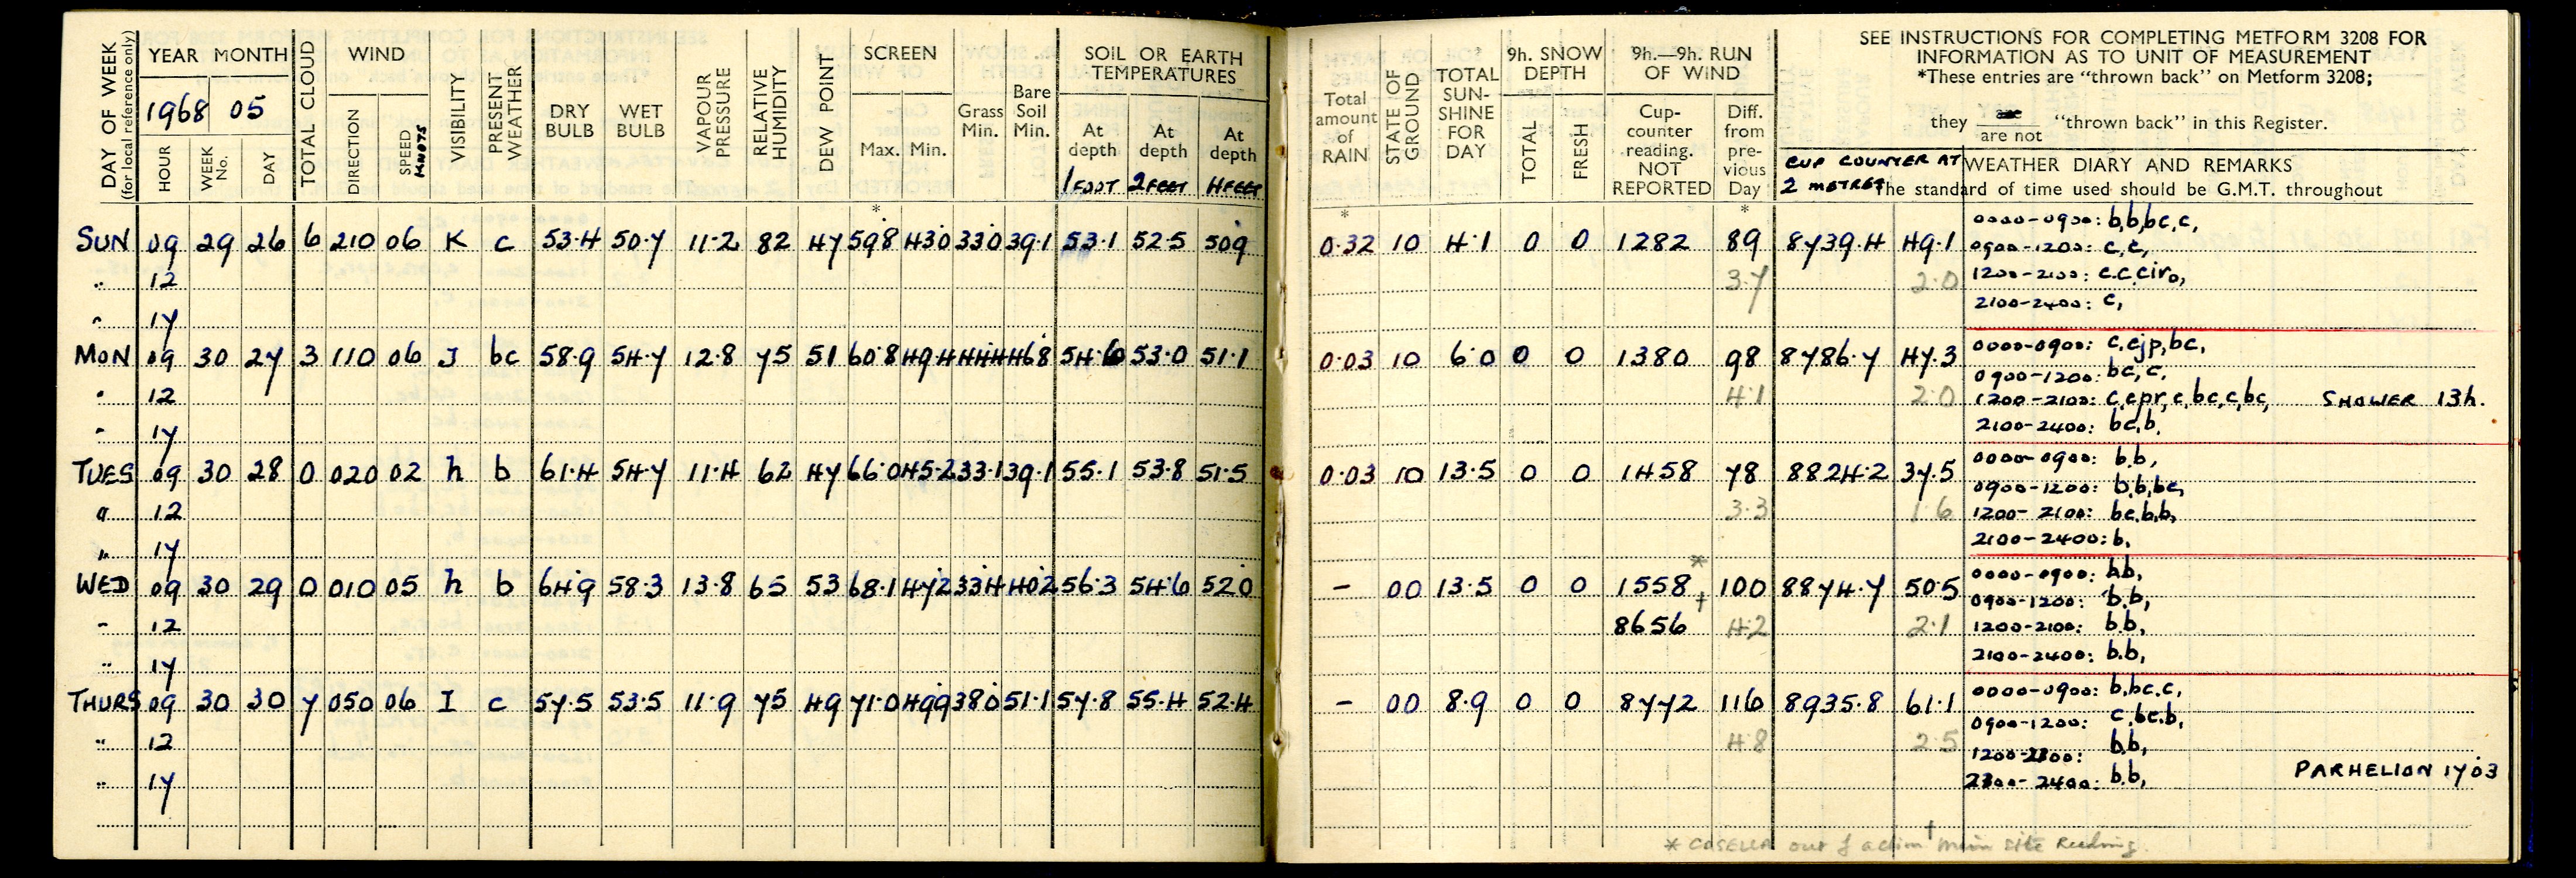 DAY OF WEEK (for local reference only) YEAR MONTH TOTAL CLOUD WIND VISIBILITY PRESENT WEATHER DRY BULB WET BULB VAPOUR PRESSURE RELATIVE HUMIDITY DEW POINT SCREEN Grass Min. Bare Soil Min. SOIL OR EARTH TEMPERATURES
1968 05
HOUR WEEK No. DAY DIRECTION SPEED KNOTS Max. Min. At depth 1 FOOT At depth 2 FEET At depth 4 FEET
*
SUN 09 29 26 6 210 06 K c 53.4 50.7 11.2 82 47 59.8 43.0 33.0 39.1 53.1 52.5 50.9
" 12
" 17
MON 09 30 27 3 110 06 J bc 58.9 54.7 12.8 75 51 60.8 49.4 44.4 46.8 54.6 53.0 51.1
" 12
" 17
TUES 09 30 28 0 020 02 h b 61.4 54.7 11.4 62 47 66.0 45.2 33.1 39.1 55.1 53.8 51.5
" 12
" 17
WED 09 30 29 0 010 05 h b 64.9 58.3 13.8 65 53 68.1 47.2 33.4 40.2 56.3 54.6 52.0
" 12
" 17
THURS 09 30 30 7 050 06 I c 57.5 53.5 11.9 75 49 71.0 49.9 38.0 51.1 57.8 55.4 52.4
" 12
" 17
Total amount of RAIN STATE OF GROUND TOTAL SUN-SHINE FOR DAY 9h. SNOW DEPTH TOTAL FRESH 9h.—9h. RUN OF WIND Cup-counter reading. NOT REPORTED Diff. from pre-vious Day
SEE INSTRUCTIONS FOR COMPLETING METFORM 3208 FOR
INFORMATION AS TO UNIT OF MEASUREMENT
*These entries are "thrown back" on Metform 3208;
they are / are not "thrown back" in this Register.
CUP COUNTER AT 2 METRES
WEATHER DIARY AND REMARKS
The standard of time used should be G.M.T. throughout
* *
0.32 10 4.1 0 0 1282 89 8739.4 49.1
3.7 2.0
0000-0900: b,b,bc,c,
0900-1200: c,c,
1200-2100: c.c.ciro,
2100-2400: c,
0.03 10 6.0 0 0 1380 98 8786.7 47.3
4.1 2.0
0000-0900: c,cjp,bc,
0900-1200: bc,c,
1200-2100: c,cpr,c,bc,c,bc, SHOWER 13h.
2100-2400: bc,b,
0.03 10 13.5 0 0 1458 78 8824.2 37.5
3.3 1.6
0000-0900: b.b,
0900-1200: b.b,bc,
1200-2100: bc.b,b,
2100-2400: b,
- 00 13.5 0 0 1558* 100 8874.7 50.5
8656† 4.2 2.1
0000-0900: b.b,
0900-1200: b.b,
1200-2100: b.b,
2100-2400: b.b,
- 00 8.9 0 0 8772 116 8935.8 61.1
4.8 2.5
0000-0900: b,bc.c,
0900-1200: c,bc.b,
1200-2300: b.b,
2300-2400: b.b, PARHELION 1703
* CASELLA out of action † Main site Reading.